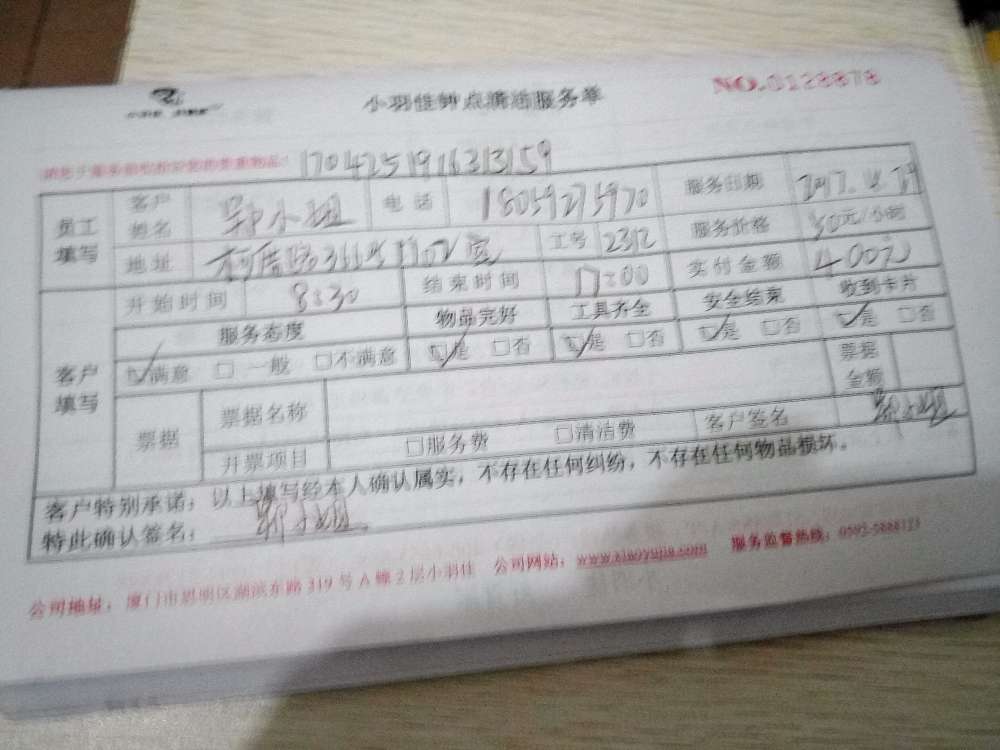 小羽佳钟点清洁服务单
NO.0128878
1704251916313159
员工填写 客户姓名 郭小姐 电话 18059275970 服务日期 2017.4.29
地址 工号 2312 服务价格 30元/小时
开始时间 8:30 结束时间 17:00 实付金额 400元
客户填写 服务态度 物品完好 工具齐全 安全结束 收到卡片
☑满意 □一般 □不满意 ☑是 □否 ☑是 □否 ☑是 □否 ☑是 □否
票据 票据名称 票据金额
开票项目 □服务费 □清洁费 客户签名 郭小姐
客户特别承诺：以上填写经本人确认属实，不存在任何纠纷，不存在任何物品损坏。
特此确认签名：郭小姐
公司地址：厦门市思明区湖滨东路319号A幢2层小羽佳 公司网站：www.xiaoyujia.com 服务监督热线：